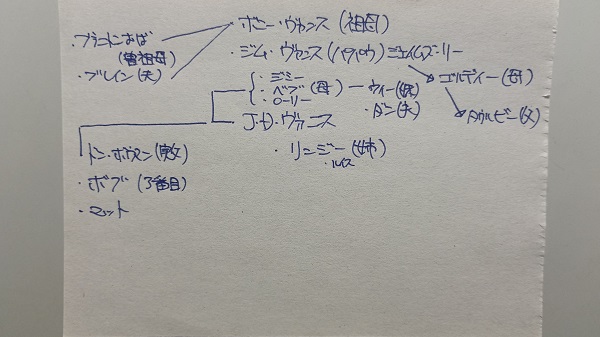 ・ブラントンおば
(曽祖母)
・ブレイン(夫)
・ボニー・ヴァンス(祖母)
・ジム・ヴァンス(パパウ)ジェイムズ・リー
ゴルディー(母)
タウルビー(父)
・ジミー
・ベブ(母)
・ローリー
ウィー(娘)
・ダン(夫)
J・D・ヴァンス
・リンジー(姉)
・ルイス
ドン・ボウマン(実父)
・ボブ(3番目)
・マット